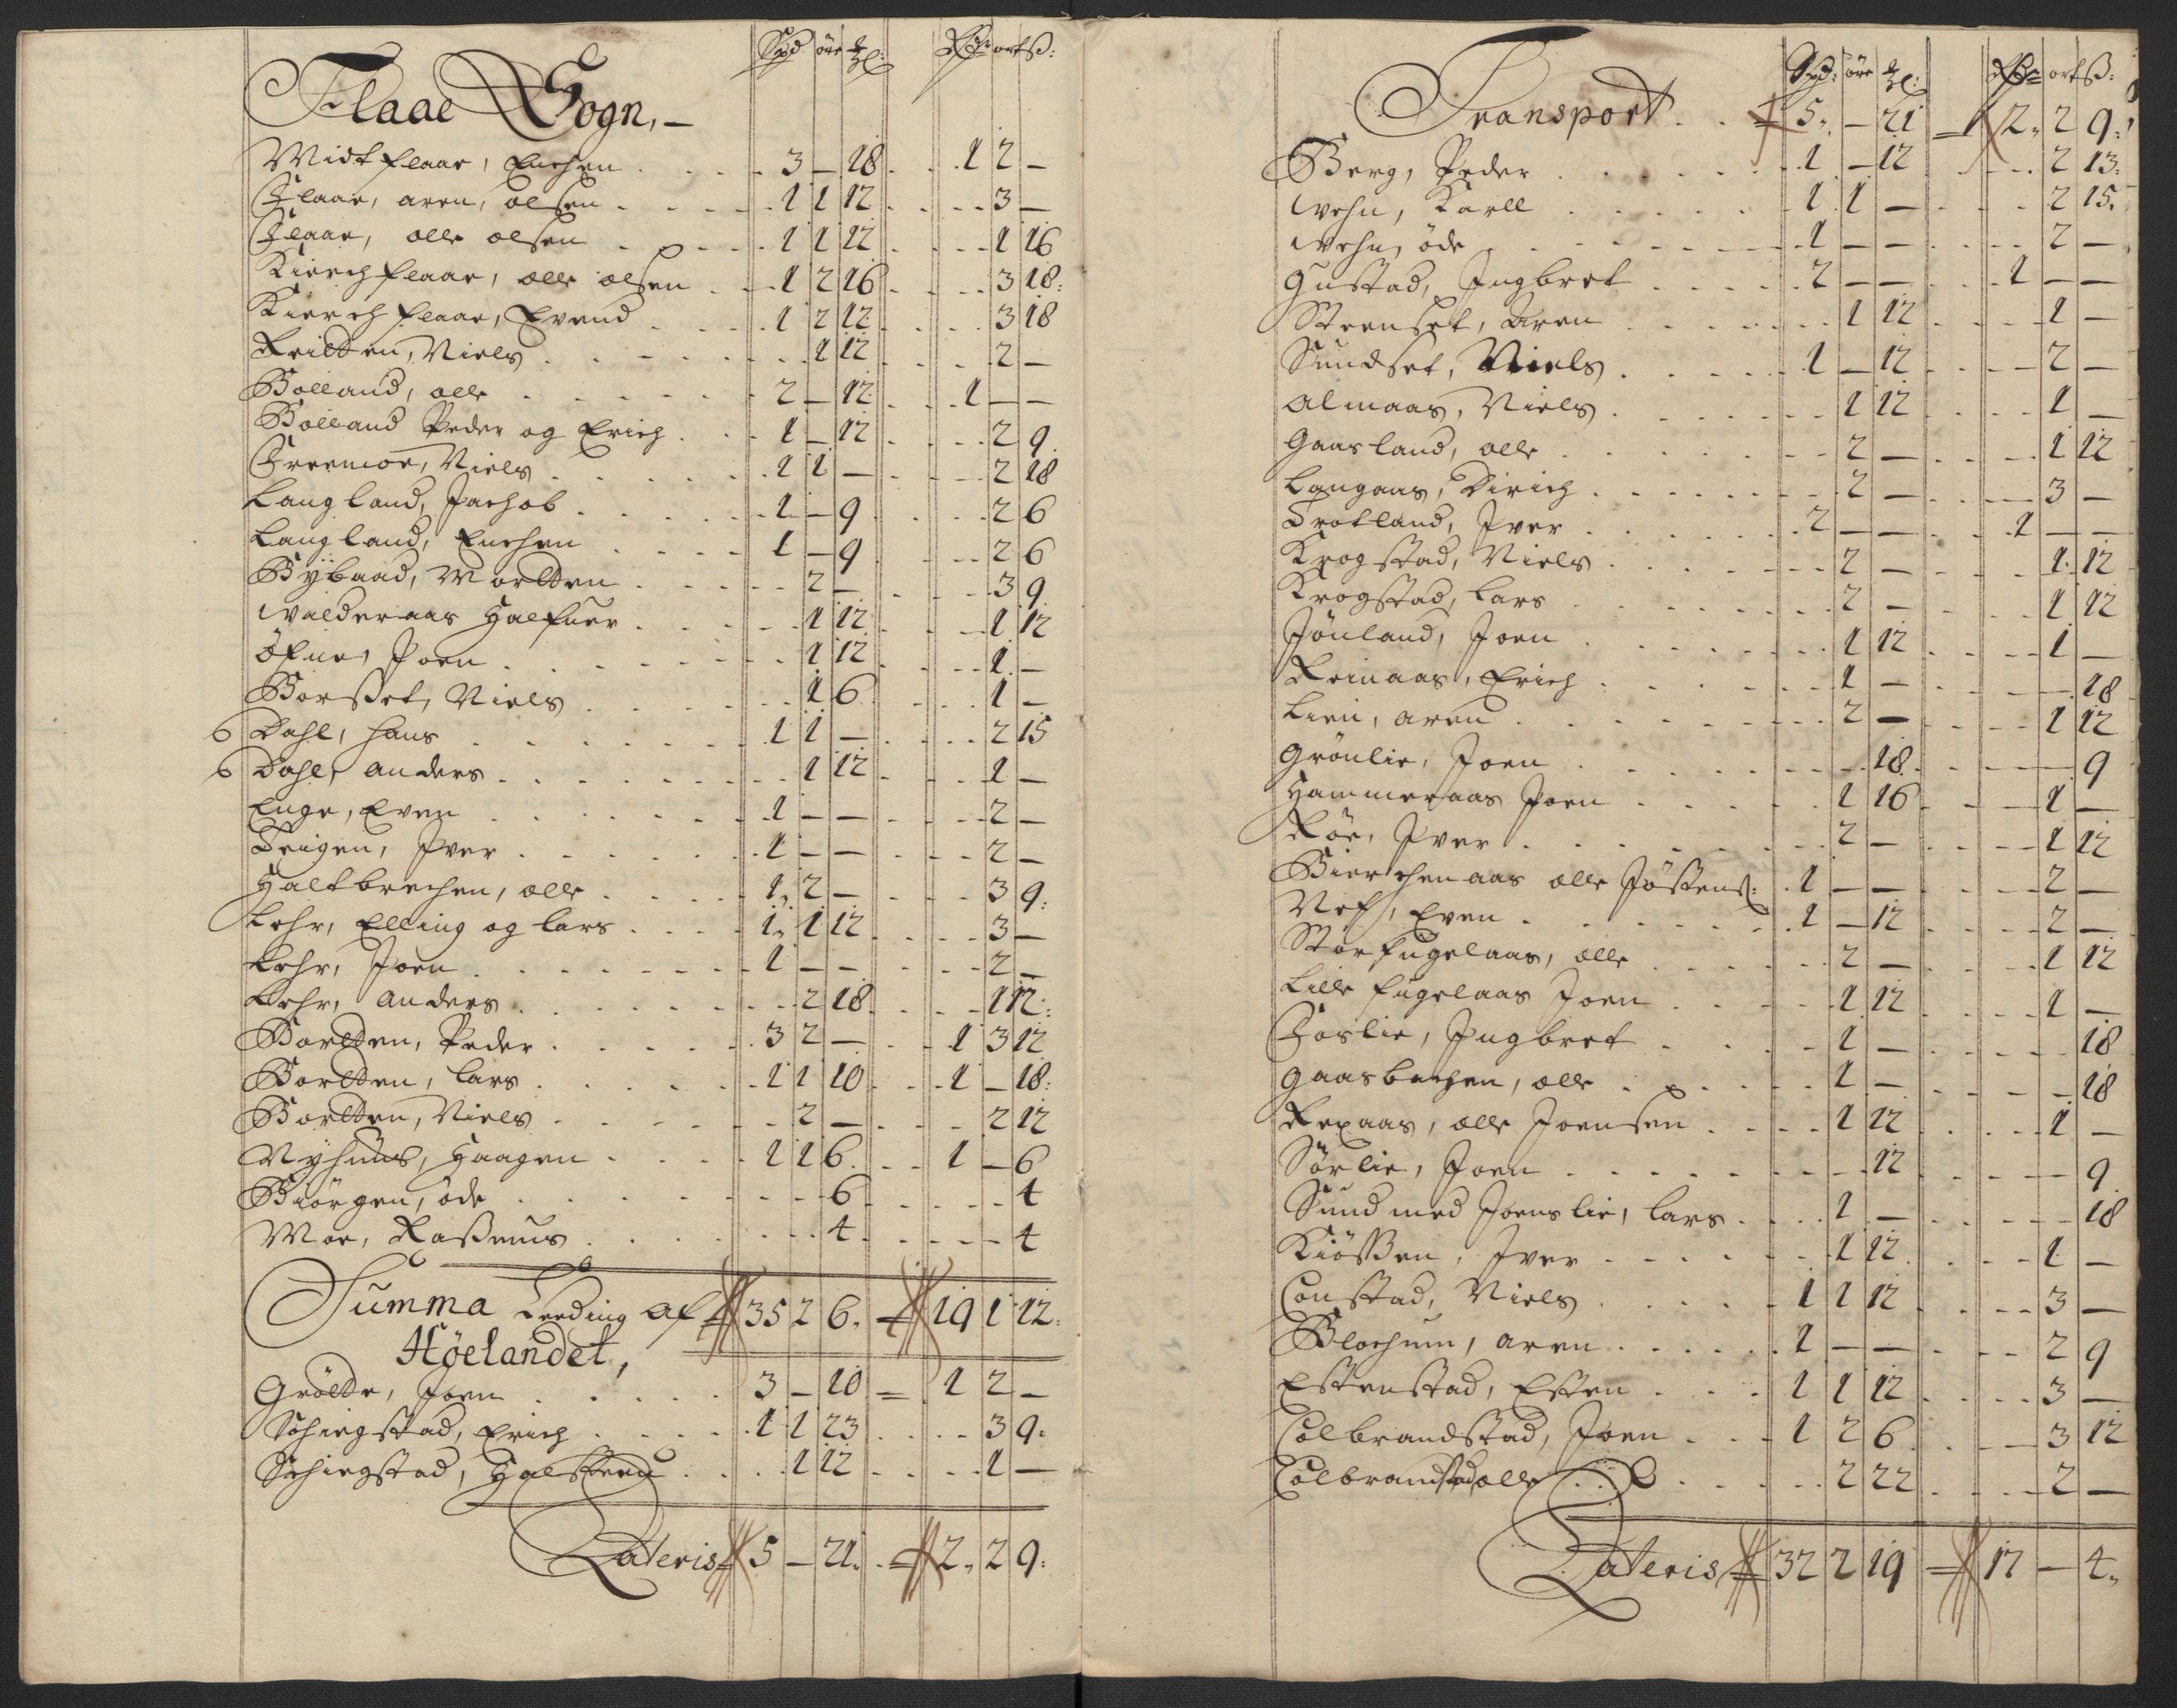 Spd öre ℔: Rdr ort ß:
Flaae Sogn,–
Midtflaae, Enchen . . . . 3 – 18 . . 1 2 –
Flaae, aren, olsen . . . . 1 1 12 . . . 3 –
Flaae, olle olsen . . . . 1 1 12 . . . 1 16
Kierchflaae, olle olsen . . 1 2 16 . . . 3 18:
Kierchflaae, Evend . . . . 1 2 12 . . . 3 18
Reitten, Niels . . . . . 1 12 . . . 2 –
Bolland, olle . . . . . 2 – 12 . . 1 – –
Bolland Peder og Erich . . 1 – 12 . . . 2 9.
Freemoe, Niels . . . . . 1 1 – . . . 2 18
Langland, Jachob . . . . 1 – 9 . . . 2 6
Langland, Enchen . . . . 1 – 9 . . . 2 6
Bÿbaad, Mortten . . . . . 2 – . . . 3 9
Valderaas Halfuer . . . . 1 12 . . . 1 12
öfne, Joen . . . . . . 1 12 . . . 1 –
Borset, Niels . . . . . 1 6 . . . 1 –
6 Dahl, Hans . . . . . . 1 1 – . . . 2 15
6 Dahl, anders . . . . . . 1 12 . . . 1 –
Enge, Even . . . . . . 1 – – . . . 2 –
Teigen, Iver . . . . . . 1 – – . . . 2 –
Haltbrechen, olle . . . . 1, 2 – . . . 3 9:
Lehr, Elling og lars . . . 1, 1 12 . . . 3 –
Lehr, Joen . . . . . . 1 – – . . . 2 –
Lehr, anders . . . . . . 2 18 . . . 1 12:
Bortten, Peder . . . . . 3 2 – . . 1 3 12
Bortten, lars . . . . . 1 1 10 . . 1 – 18:
Bortten, Niels . . . . . 2 – . . . 2 12
Nÿhuus, Haagen . . . . 1 1 6 . . 1 – 6
Biörgen, öde . . . . . . 6 . . . . 4
Moe, Rasmus . . . . . . 4 . . . . 4
Summa Leeding Af 35 2 6. 19 1 12:
Höelandet,
Grötte, Joen . . . . . 3 – 10 = 1 2 –
Schiegstad, Erich . . . . 1 1 23 . . . 3 9:
Schiegstad, Halsteen . . . . 1 12 . . . 1 –
Lateris 5 – 21. 2, 2 9:
Spd: öre ℔: Rdr ort ß:
Transport . . 5, – 21 – 2, 2 9:
Berg, Peder . . . . . . 1 – 12 . . . 2 13:
Vehn, Karll . . . . . . 1 1 – . . . 2 15.
Vehn, öde . . . . . . 1 – – . . . 2 –
Gustad, Ingbret . . . . . 2 – – . . 1 – –
Steenset, Aren . . . . . . 1 12 . . . 1 –
Sundset, Niels . . . . . 1 – 12 . . . 2 –
Almaas, Niels . . . . . . 1 12 . . . 1 –
Gaasland, olle . . . . . . 2 – . . . 1 12
Langaas, Dirich . . . . . 2 – . . . 3 –
Trotland, Iver . . . . . 2 – – . . 1 – –
Krogstad, Niels . . . . . 2 – . . . 1. 12
Krogstad, lars . . . . . . 2 – . . . 1 12
Jönland, Joen . . . . . . 1 12 . . . 1 –
Reinaas, Erich . . . . . 1 – . . . – 18
Lien, aren . . . . . . 2 – . . . 1 12
Grönlie, Joen . . . . . . 18 . . . – 9
Hammeraas Joen . . . . . 1 16 . . . 1 –
Röe, Iver . . . . . . 2 – . . . 1 12
Bierchenaas olle Jöstens: . . 1 – – . . . 2 –
Nef, Even . . . . . . 1 – 12 . . . 2 –
Storfugelaas, olle . . . . . 2 – . . . 1 12
Lille fugelaas Joen . . . . 1 12 . . . 1 –
Foslie, Ingbret . . . . . 1 – . . . . 18
Gaasbachen, olle . . . . . 1 – . . . – 18
Rexaas, olle Joensen . . . . 1 12 . . . 1 –
Sörlie, Joen . . . . . . 12 . . . – 9
Sund med Joenslie, lars . . . . 1 – . . . – 18
Kiössen, Iver . . . . . . 1 12 . . . 1 –
Constad, Niels . . . . . 1 1 12 . . . 3 –
Blochum, aren . . . . . 1 – – . . . 2 9
Estenstad, Esten . . . . 1 1 12 . . . 3 –
Colbrandstad, Joen . . . 1 2 6 . . . 3 12
Colbrandstad olle . . . . . 2 22 . . . 2 –
Lateris 32 2 19 – 17 – 4,